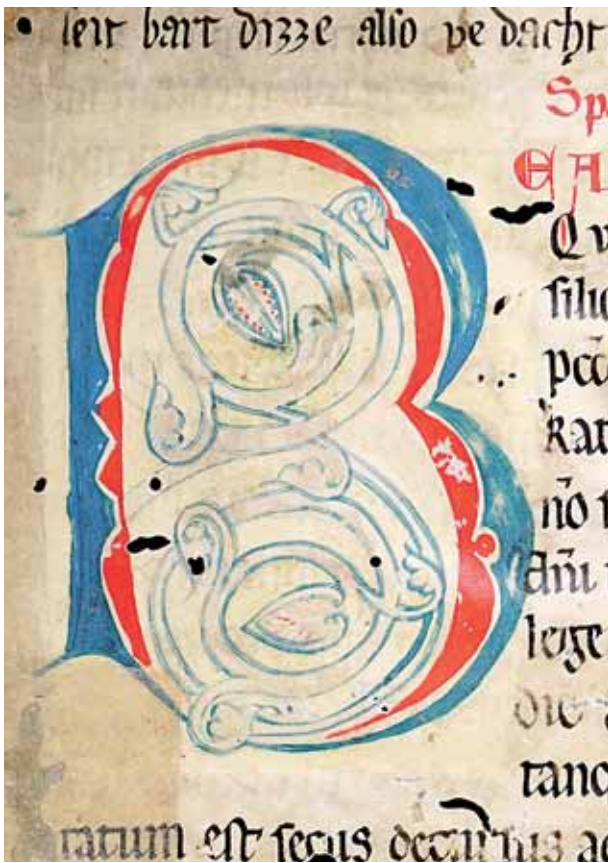 leit bart dizze alſo ve dacht
Sp
EA
Qv
ſili
pcc
Rat
n̄o
lege
die
tanq
tatum eſt ſecus decurſus aq